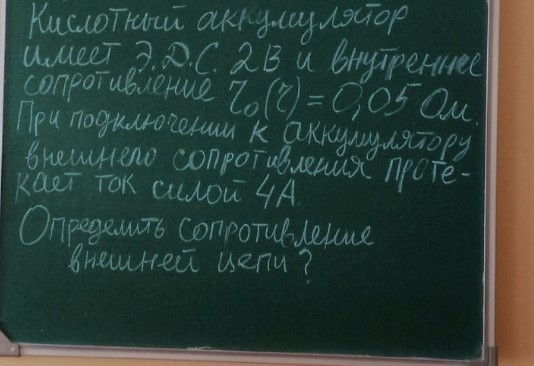 Кислотный аккумулятор
имеет Э.Д.С. 2В и внутреннее
сопротивление r₀(r) = 0,05 Ом.
При подключении к аккумулятору
внешнего сопротивления проте-
кает ток силой 4А.
Определить сопротивление
внешней цепи?